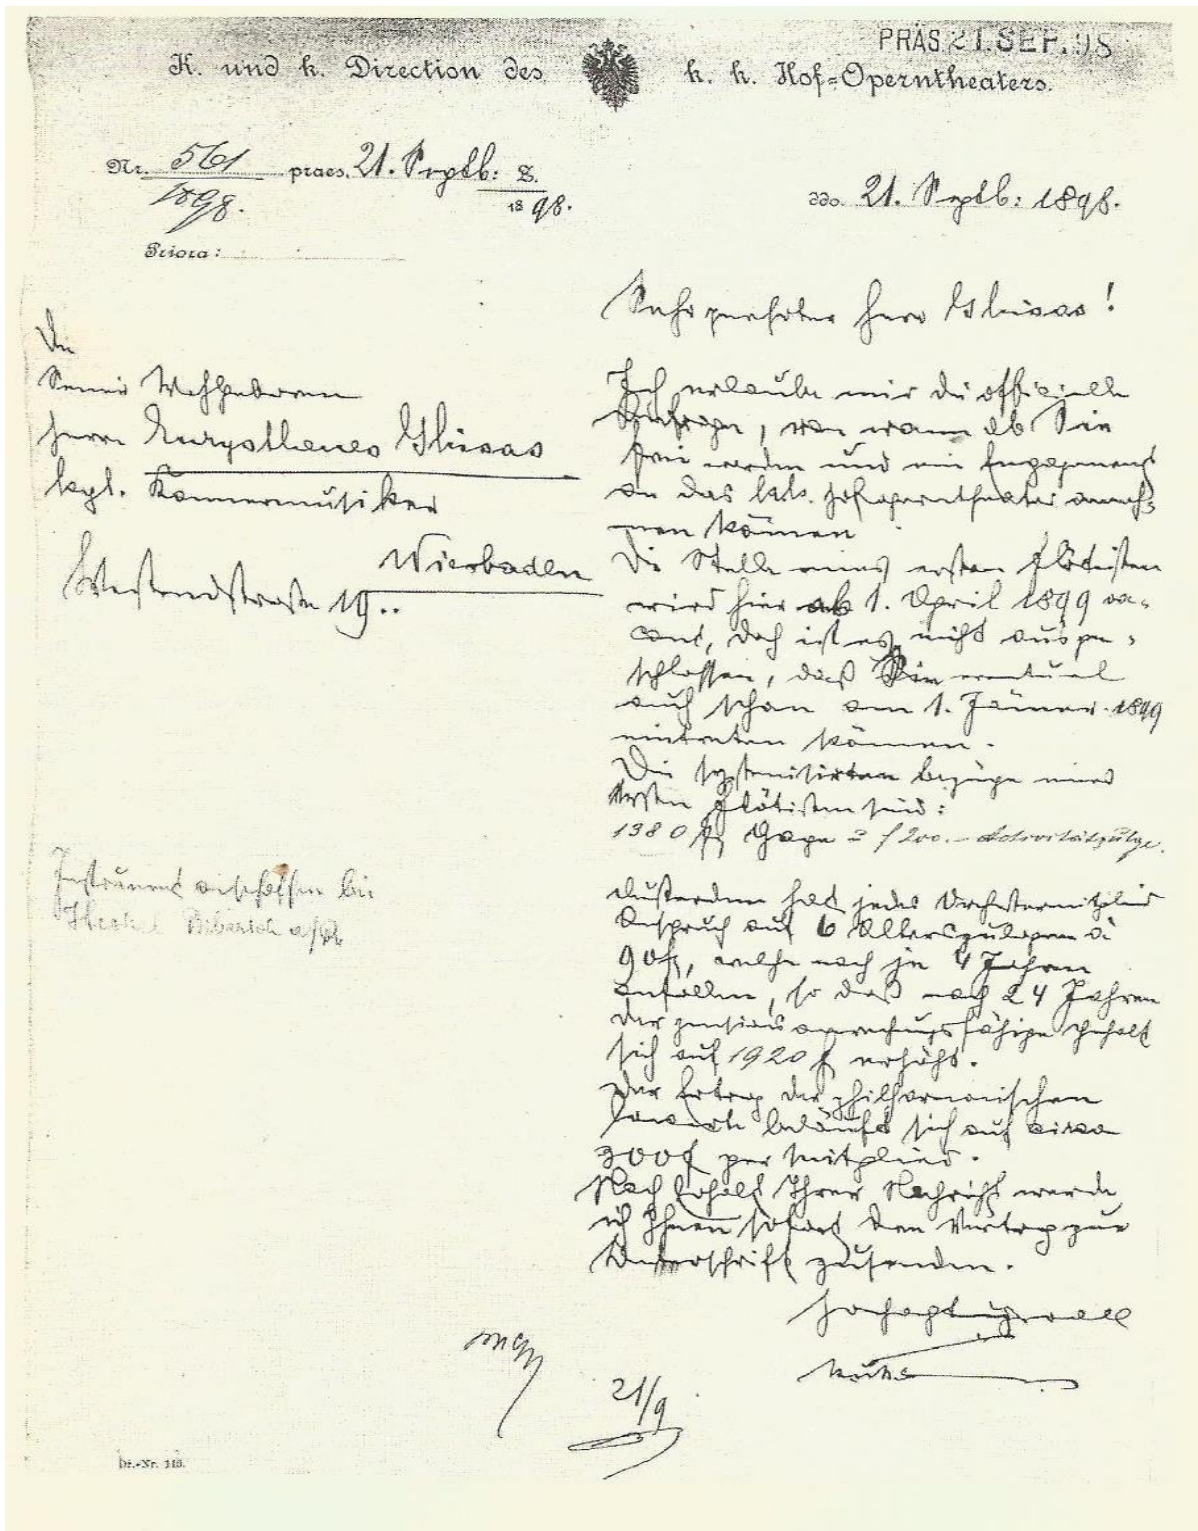 PRÄS. 21. SEP. 98
K. und k. Direction des k. k. Hof=Operntheaters.
Nr. 561 praes. 21. Septb: Z.
1898. 18 98.
ddo. 21. Septb: 1898.
Priora:
Sehr geehrter Herr Ghisas!
An
Seiner Wohlgeboren
Herrn Eurysthenes Ghisas
kgl. Kammermusiker
Wiesbaden
Westendstrasse 19..
Ich erlaube mir die officielle
Anfrage, von wann ab Sie
frei werden und ein Engagement
an das k.k. Hofoperntheater anneh=
men können
Die Stelle eines ersten Flötisten
wird hier ab 1. April 1899 va=
cant, doch ist es nicht ausge=
schlossen, daß Sie eventuel
auch schon am 1. Jänner 1899
eintreten können.
Die systemisirten Bezüge eines
ersten Flötisten sind:
1380 fl Gage u f 200.– Activitätszulge.
Instrument anschaffen bei
Heckel Biberich a/Rh
Ausserdem hat jedes Orchestermitglied
Anspruch auf 6 Alterszulagen à
90 fl, welche nach je 4 Jahren
anfallen, so daß nach 24 Jahren
der pensionsanrechnungsfähige Gehalt
sich auf 1920 f erhöht.
Der Ertrag der philharmonischen
Concerte beläuft sich auf circa
300 f per Mitglied.
Nach Erhalt Ihrer Nachricht werde
ich Ihnen sofort den Vertrag zur
Unterschrift zusenden.
Hochachtungsvoll
21/9
Dr.-Nr. 113.